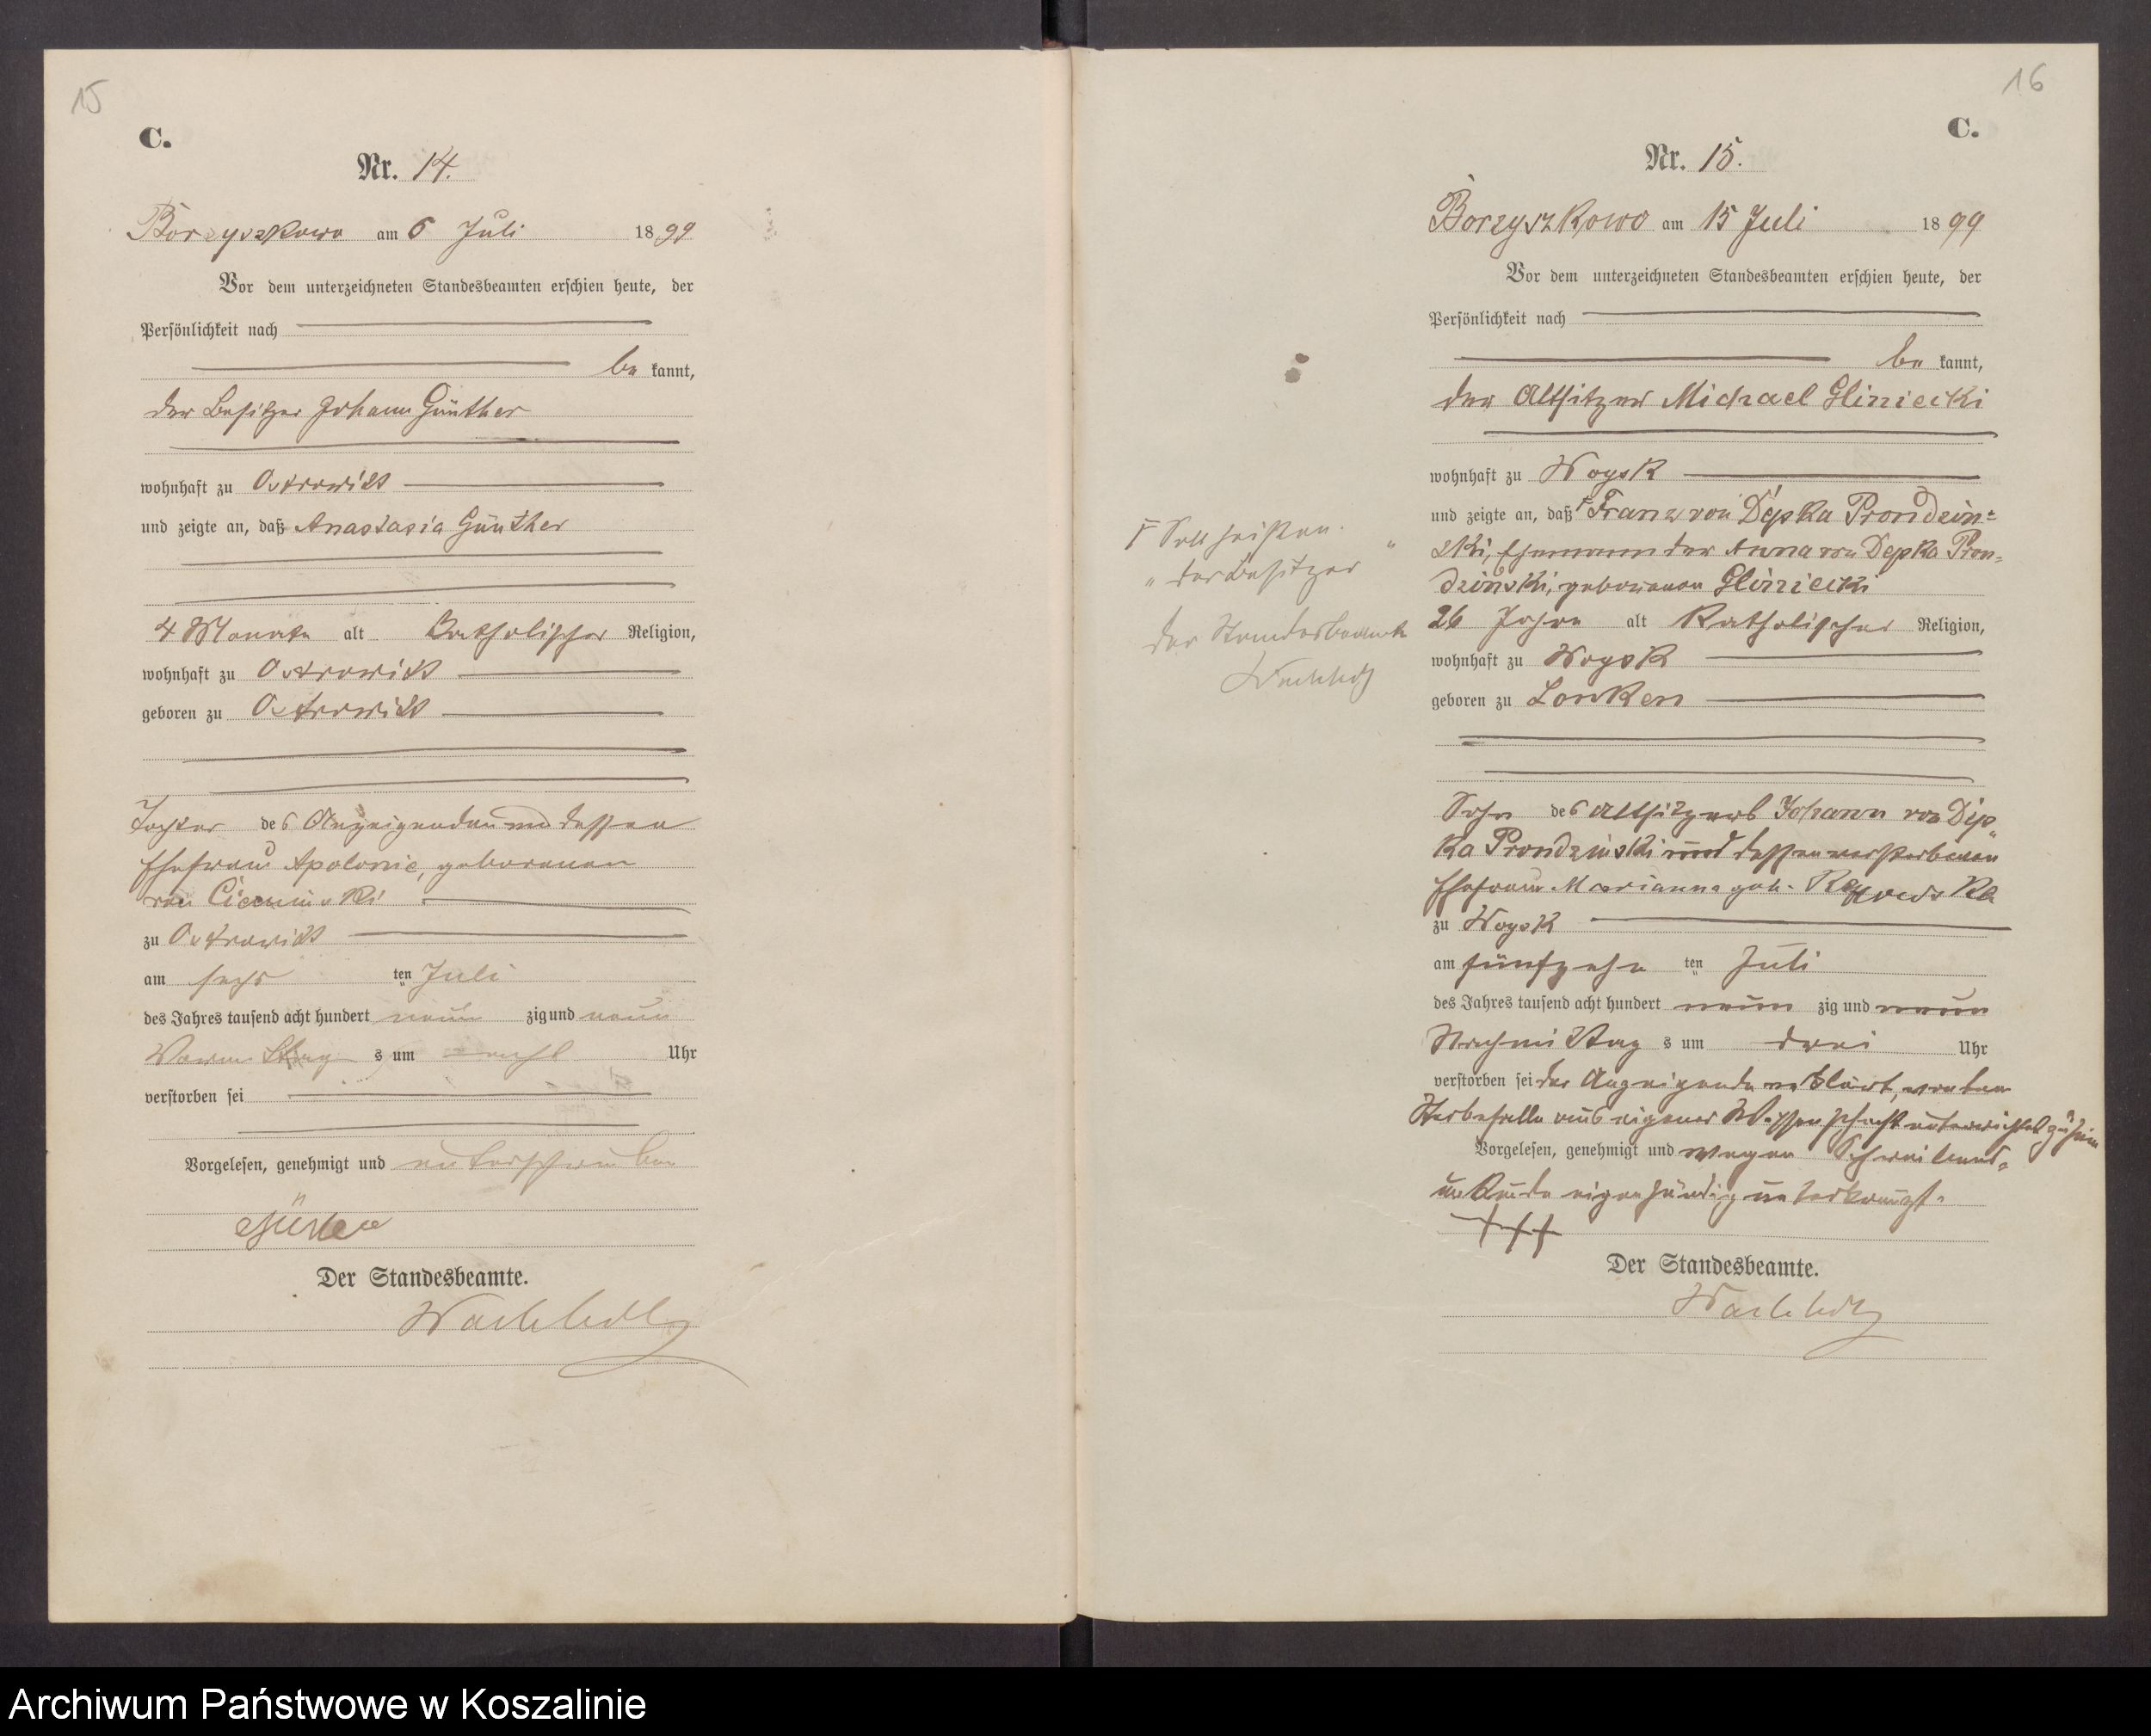 15
C.
Nr. 14.
Borzyszkowo am 6 Juli 1899
Vor dem unterzeichneten Standesbeamten erschien heute, der
Persönlichkeit nach
be kannt,
der Besitzer Johann Günther
wohnhaft zu Ostrowitt
und zeigte an, daß Anastasia Günther
4 Monate alt katholischer Religion,
wohnhaft zu Ostrowitt
geboren zu Ostrowitt
Tochter des Anzeigenden und dessen
Ehefrau Apolonie, geborenen
von
zu Ostrowitt
am sechs ten Juli
des Jahres tausend acht hundert neun zig und neun
Vormittag s um acht Uhr
verstorben sei
Vorgelesen, genehmigt und unterschrieben
Der Standesbeamte.
16
C.
Nr. 15.
Borzyszkowo am 15 Juli 1899
Vor dem unterzeichneten Standesbeamten erschien heute, der
Persönlichkeit nach
be kannt,
der Altsitzer Michael Gliniecki
wohnhaft zu Woysk
und zeigte an, daß Franz von Depka Prondzin=
ski, Ehemann der Anna von Depka Pron=
dzinski, geborenen Gliniecki
26 Jahre alt katholischer Religion,
wohnhaft zu Woysk
geboren zu Lonken
Sohn des Altsitzers Johann von Dep
ka Prondzinski und dessen verstorbenen
Ehefrau Marianna geb.
zu Woysk
am fünfzehn ten Juli
des Jahres tausend acht hundert neun zig und neun
Nachmittag s um drei Uhr
verstorben sei der Anzeigende erklärt, von dem
Sterbefalle aus eigener Wissenschaft unterrichtet zu sein
Vorgelesen, genehmigt und wegen Schreibens=
unkunde eigenhändig unterkreuzt.
+++
Der Standesbeamte.
Soll heißen.
"der Besitzer"
Der Standesbeamte
Archiwum Państwowe w Koszalinie